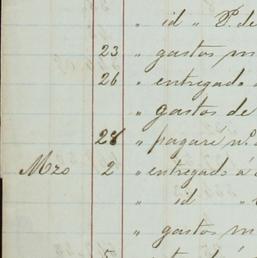 " id " P. de
23 " gastos m
26 " entregado a
" gastos de
28 " pagaré nº
Mzo 2 " entregado á
" id "
" gastos m
5 "